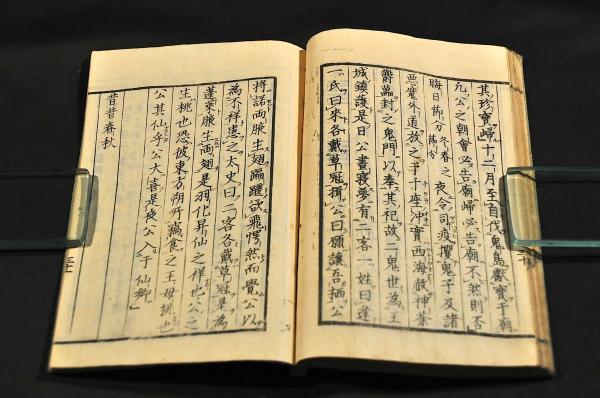 其珍寶歸十二月至自伐鬼島獻寶于朝
凡公之朝會必告廟歸必告廟不然則否
晦日節分之夜令司疫攫鬼子及諸
悪魔外道故之千座沖寶西海救神
爵萬封之鬼門以奉其祀故二鬼世為王
城鎮護是日公晝寢夢有二客一姓曰蓬
一氏曰來各戴草冠揖公曰願讓吾栖公
將諾兩腋生翅蹁躚欲飛愕然而覺公以
為不祥患之太史曰二客各戴草冠是為
蓬萊腋生兩翅是羽化昇仙之祥也公之
生桃也恐彼東方朔所竊食之王母桃也
公其仙乎公大喜是夜公入于仙郷
昔昔春秋